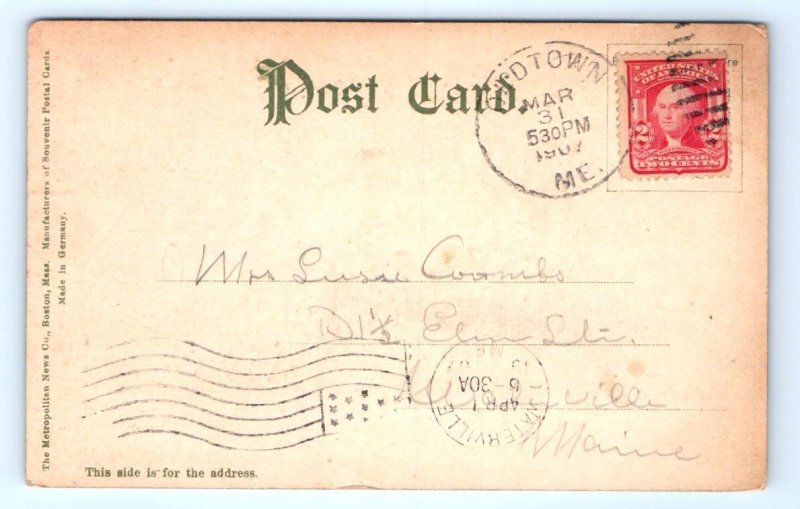 Post Card.
OLDTOWN
MAR
31
530PM
1907
ME.
UNITED STATES
OF AMERICA
2 2
POSTAGE
TWO CENTS
Mrs Susie Coombs
Elm Str.
Waterville
Maine
WATERVILLE
APR 1
6-30A
ME.
This side is for the address.
The Metropolitan News Co., Boston, Mass. Manufacturers of Souvenir Postal Cards.
Made in Germany.